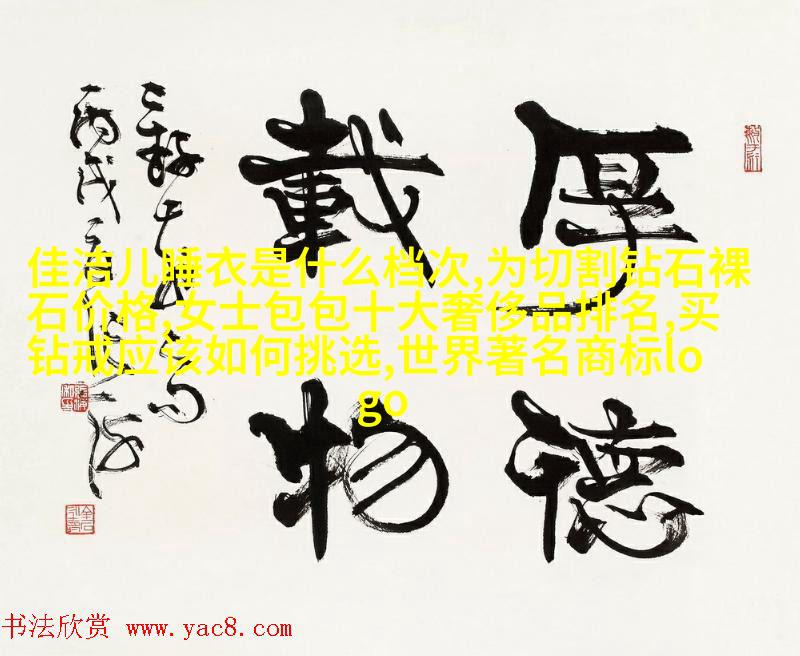 厚德
載物
佳洁儿睡衣是什么档次,为切割钻石裸
石价格,女士包包十大奢侈品排名,买
钻戒应该如何挑选,世界著名商标lo
go
书法欣赏 www.yac8.com